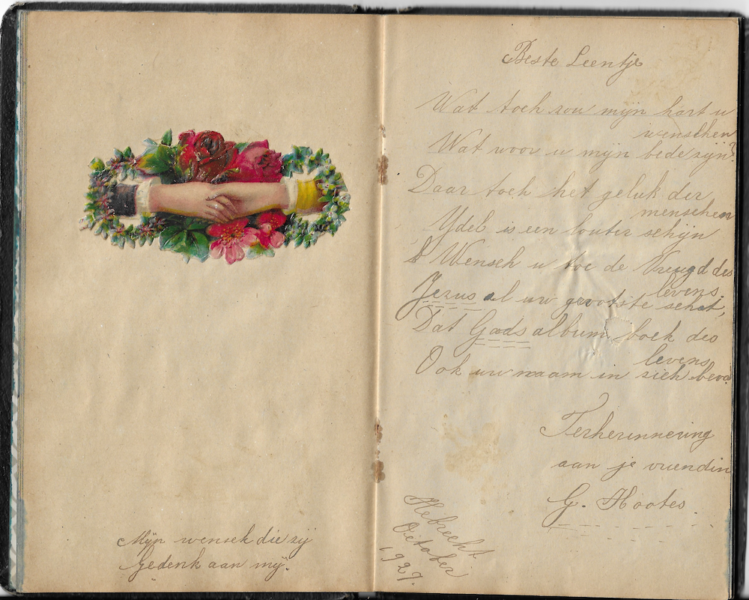 Mijn wensch die zij
Gedenk aan mij.
Beste Leentje
Wat toch zou mijn hart u
wenschen
Wat voor u mijn bede zijn?
Daar toch het geluk der
menschen
Ydel is een louter schijn
Wensch u toe de Vreugd des
levens.
Jezus al uw grootste schat,
Dat Gods album boek des
levens
Ook uw naam in zich bevat
Terherinnering
aan je vriendin
G. Hootes.
October
1927.